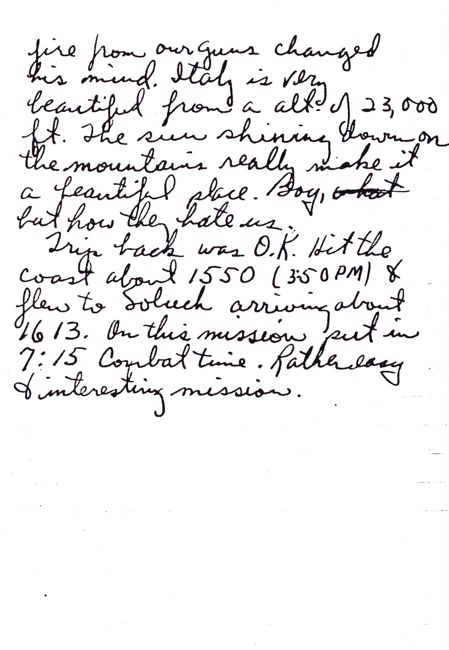 fire from our guns changed
his mind. Italy is very
beautiful from a alt. of 23,000
ft. The sun shining down on
the mountains really make it
a beautiful place. Boy, what
but how they hate us.
Trip back was O.K. Hit the
coast about 1550 (3:50 PM) &
flew to Soluch arriving about
1613. On this mission put in
7:15 Combat time. Rather easy
& interesting mission.